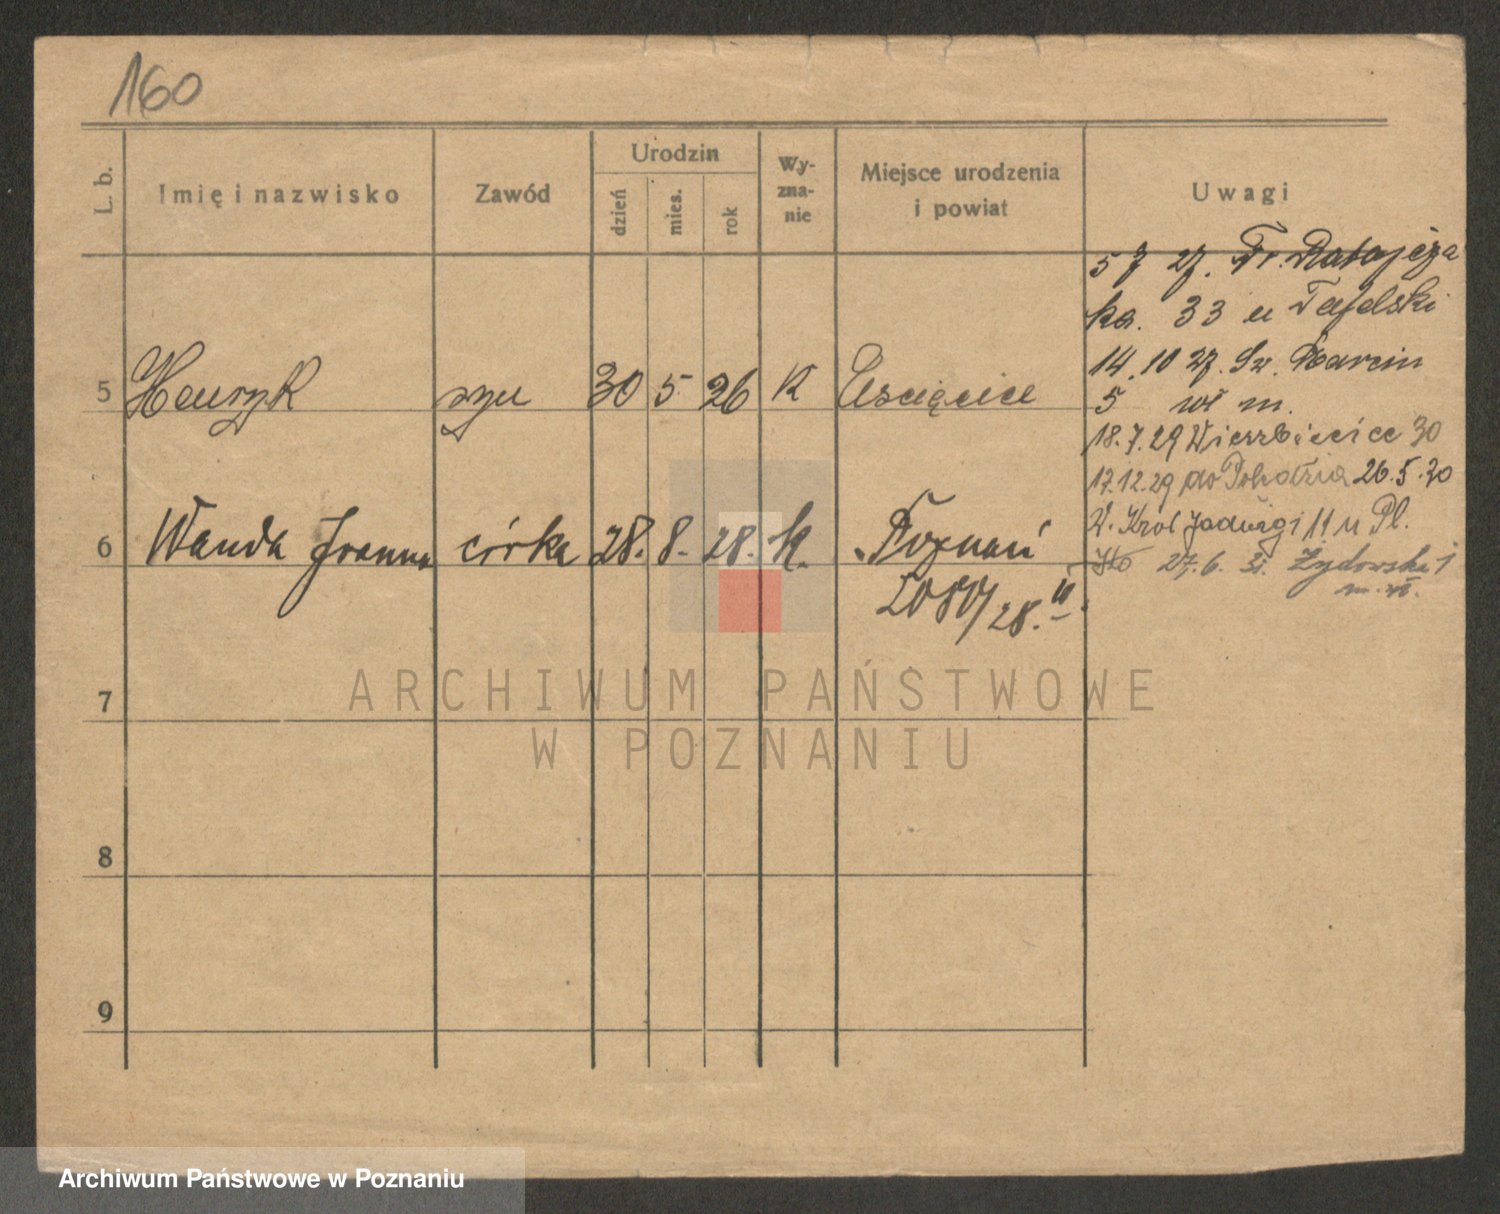 160
L. b.
Imię i nazwisko
Zawód
Urodzin
dzień
mies.
rok
Wy-
zna-
nie
Miejsce urodzenia
i powiat
Uwagi
5 7 27. Fr. Ratajcza
ka. 33 u Tafelski
14.10 27. Św. Marcin
5 wł m.
5 Henryk syn 30 5 26 K Uścięcice
18.7.29 Wierzbięcice 30
17.12.29 do 26.5.30
6 Wanda Joanna córka 28. 8. 28. K. Poznań
W. Król Jadwigi 11 u Pl.
27.6. 31. Żydowska 1
m. wł.
/28. II.
7
8
9
ARCHIWUM PAŃSTWOWE
W POZNANIU
Archiwum Państwowe w Poznaniu